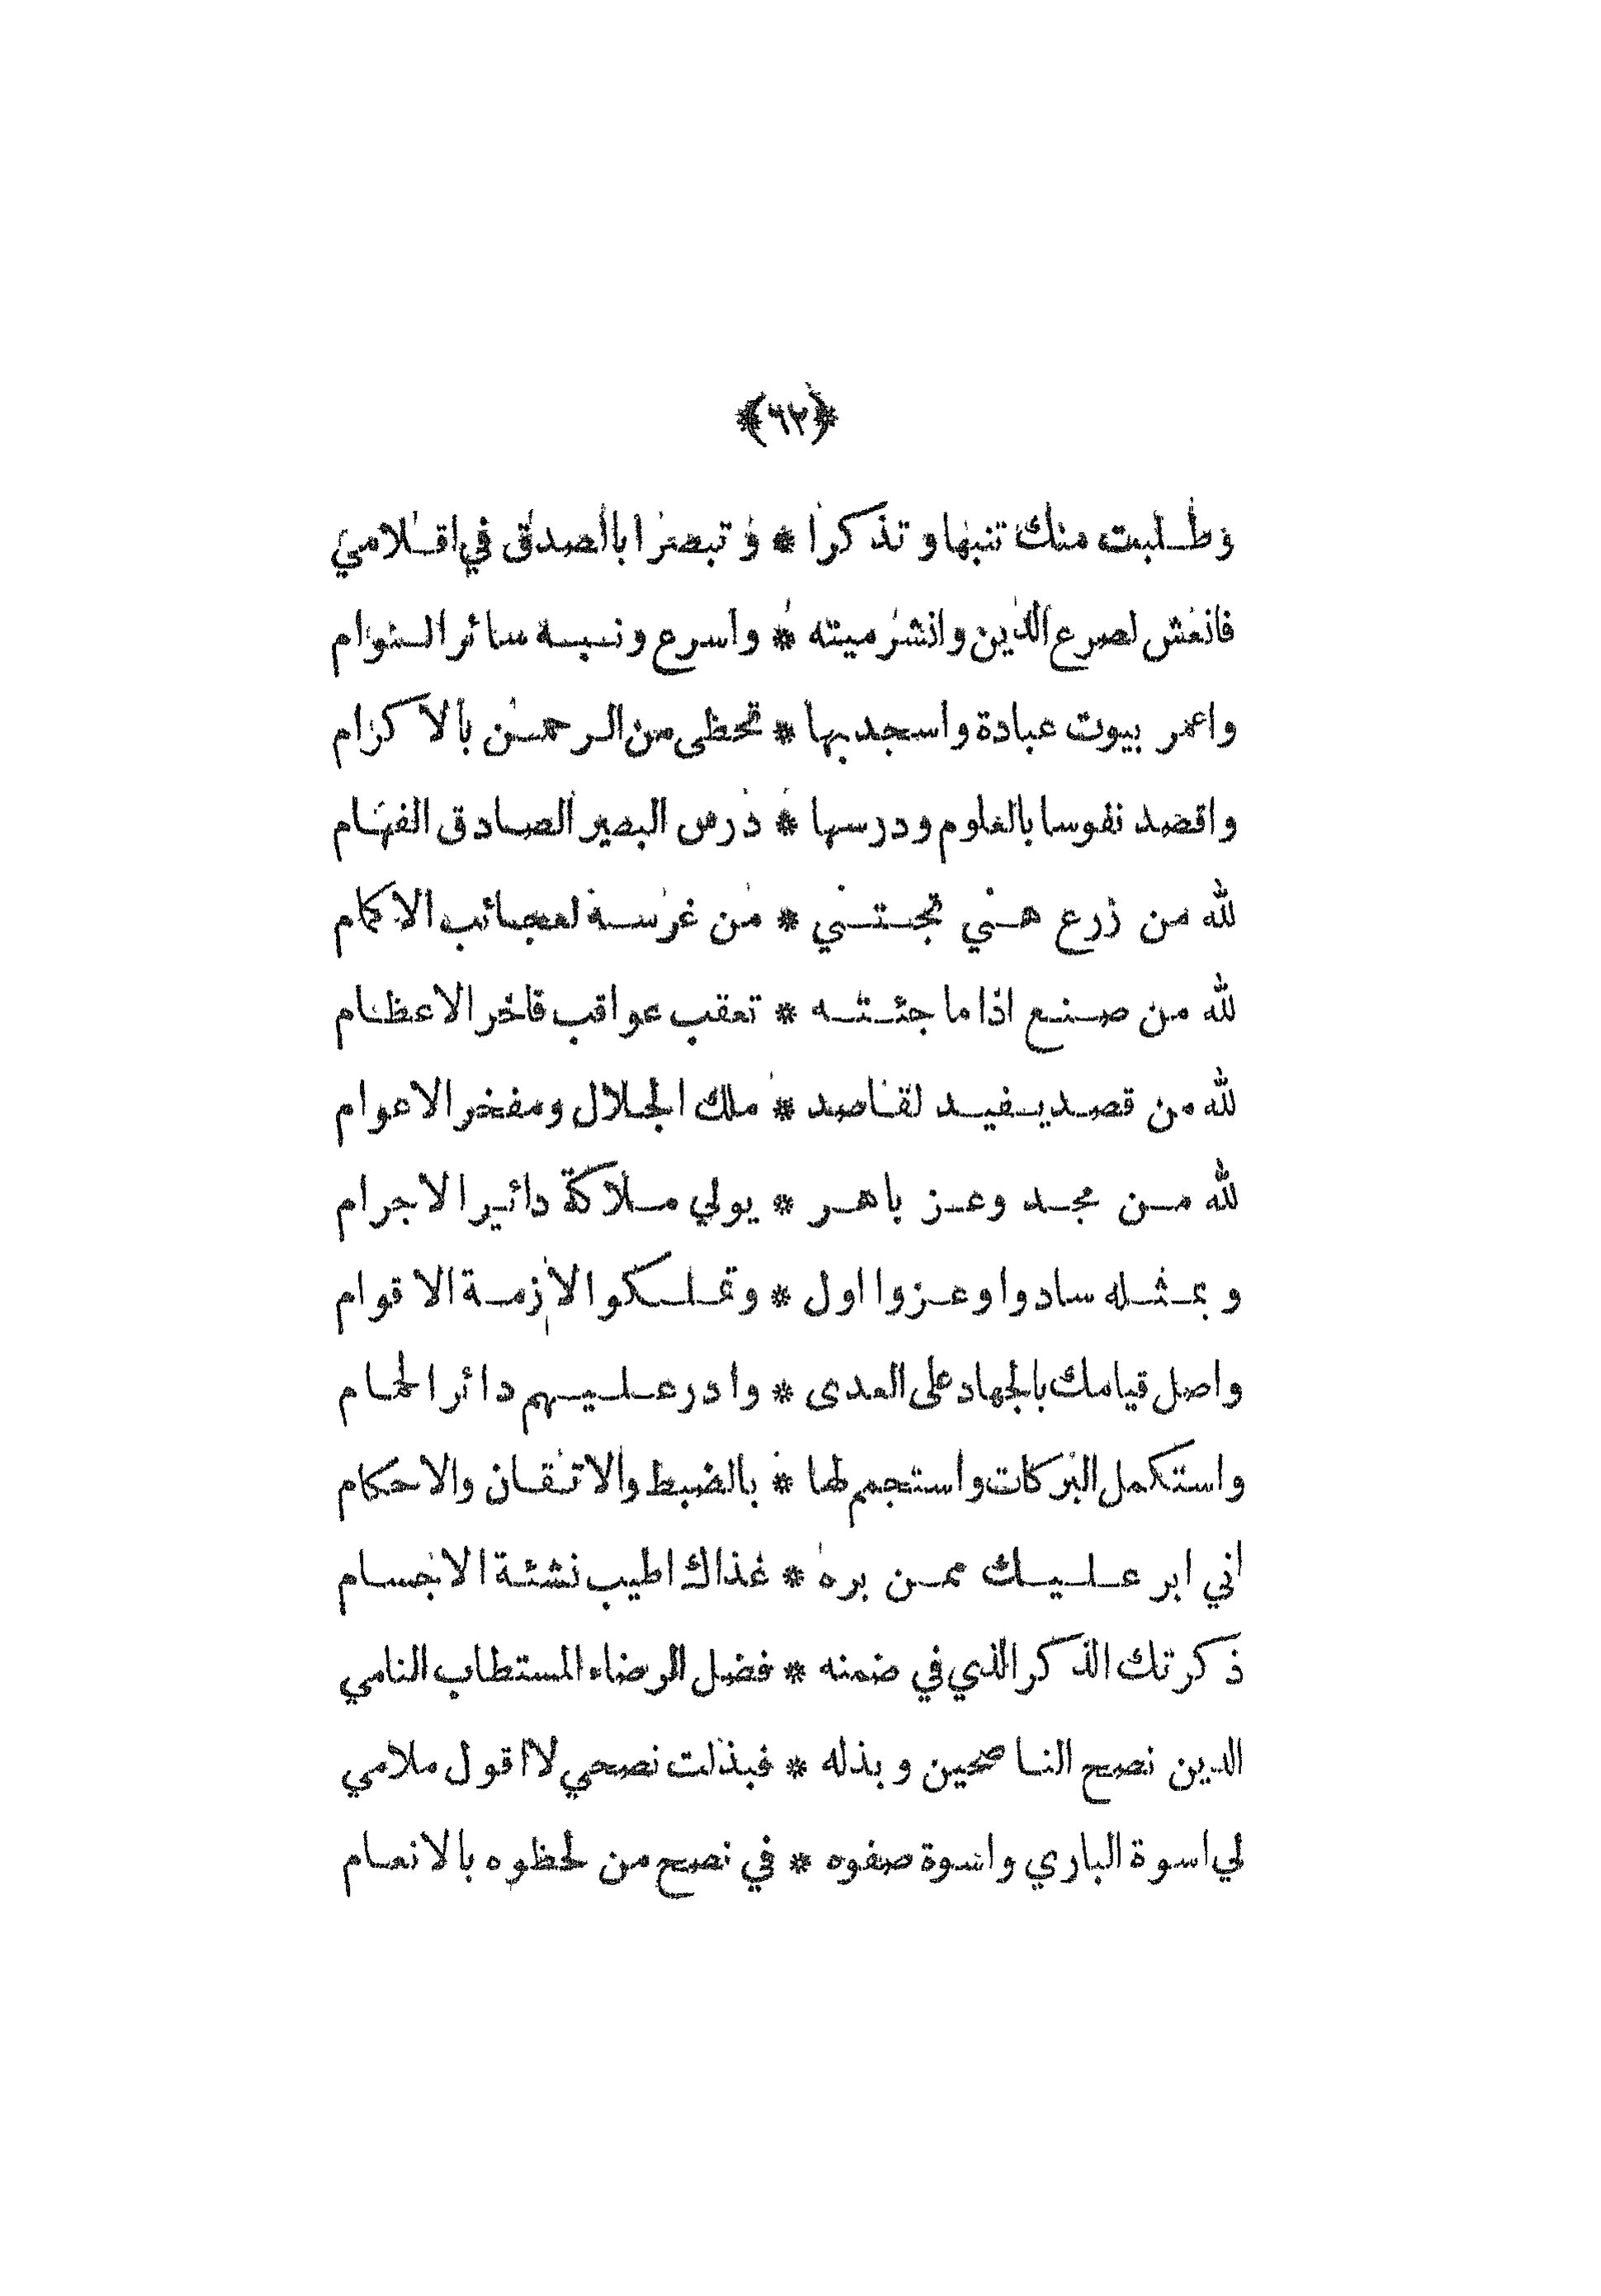 ﴿٦٢﴾
وطلبت منك تنبها وتذكرا * وتبصرا بالصدق في اقلامي
فانعش لصرع الدين وانشر ميته * واسرع ونبه سائر النوام
واعمر بيوت عبادة واسجد بها * تحظى من الرحمن بالاكرام
واقصد نفوسا بالعلوم ودرسها * درس البصير الصادق الفهام
لله من زرع هني تجتني * من غرسه لعجائب الاكام
لله من صنع اذا ما جئته * تعقب عواقب فاخر الاعظام
لله من قصد يفيد لقاصد * ملك الجلال ومفخر الاعوام
لله من مجد وعز باهر * يولي ملاكة دائر الاجرام
وبمثله سادوا وعزوا اول * وتملكوا الازمة الاقوام
واصل قيامك بالجهاد على العدى * وادر عليهم دائر الحمام
واستكمل البركات واستجمم لها * بالضبط والاتقان والاحكام
اني ابر عليك ممن بره * غذاك اطيب نشئة الاجسام
ذكرتك الذكر الذي في ضمنه * فضل الرضاء المستطاب النامي
الدين نصح الناصحين وبذله * فبذلت نصحي لا اقول ملامي
لي اسوة الباري واسوة صفوه * في نصح من لحظوه بالانعام